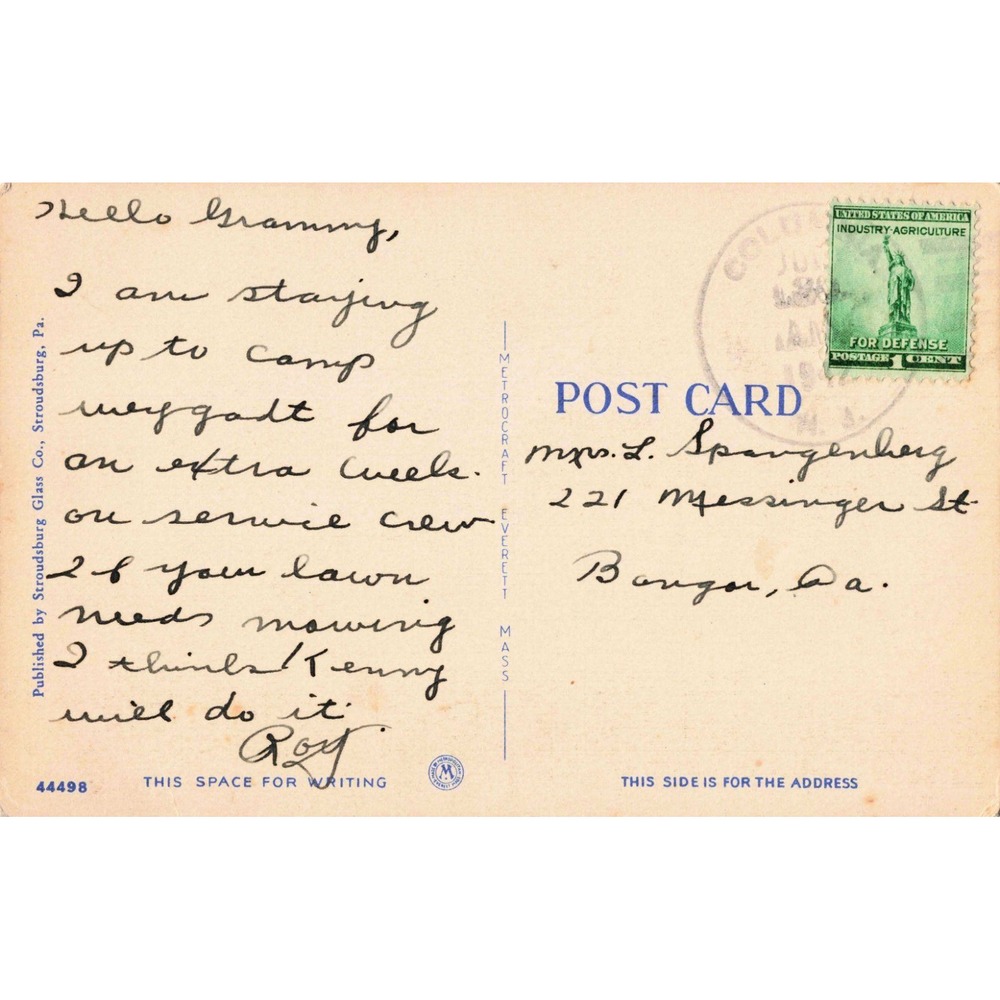 Hello Grammy,
I am staying
up to camp
weygadt for
an extra week.
on service crew
If your lawn
needs mowing
I think Kenny
will do it.
Roy
44498
THIS SPACE FOR WRITING
Published by Stroudsburg Glass Co., Stroudsburg, Pa.
METROCRAFT EVERETT MASS
M
UNITED STATES OF AMERICA
INDUSTRY-AGRICULTURE
FOR DEFENSE
POSTAGE 1 CENT
N. J.
POST CARD
Mrs. L. Spangenberg
221 Messinger St
Bangor, Pa.
THIS SIDE IS FOR THE ADDRESS